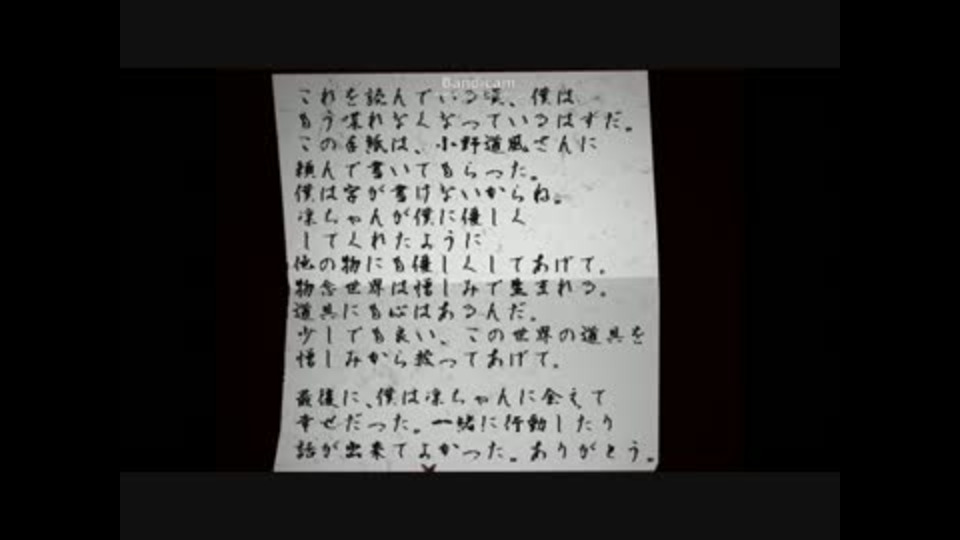 Bandicam
これを読んでいる頃、僕は
もう喋れなくなっているはずだ。
この手紙は、小野道風さんに
頼んで書いてもらった。
僕は字が書けないからね。
凛ちゃんが僕に優しく
してくれたように
他の物にも優しくしてあげて。
物念世界は憎しみで生まれる。
道具にも心はあるんだ。
少しでも良い、この世界の道具を
憎しみから救ってあげて。
最後に、僕は凛ちゃんに会えて
幸せだった。一緒に行動したり
話が出来てよかった。ありがとう。